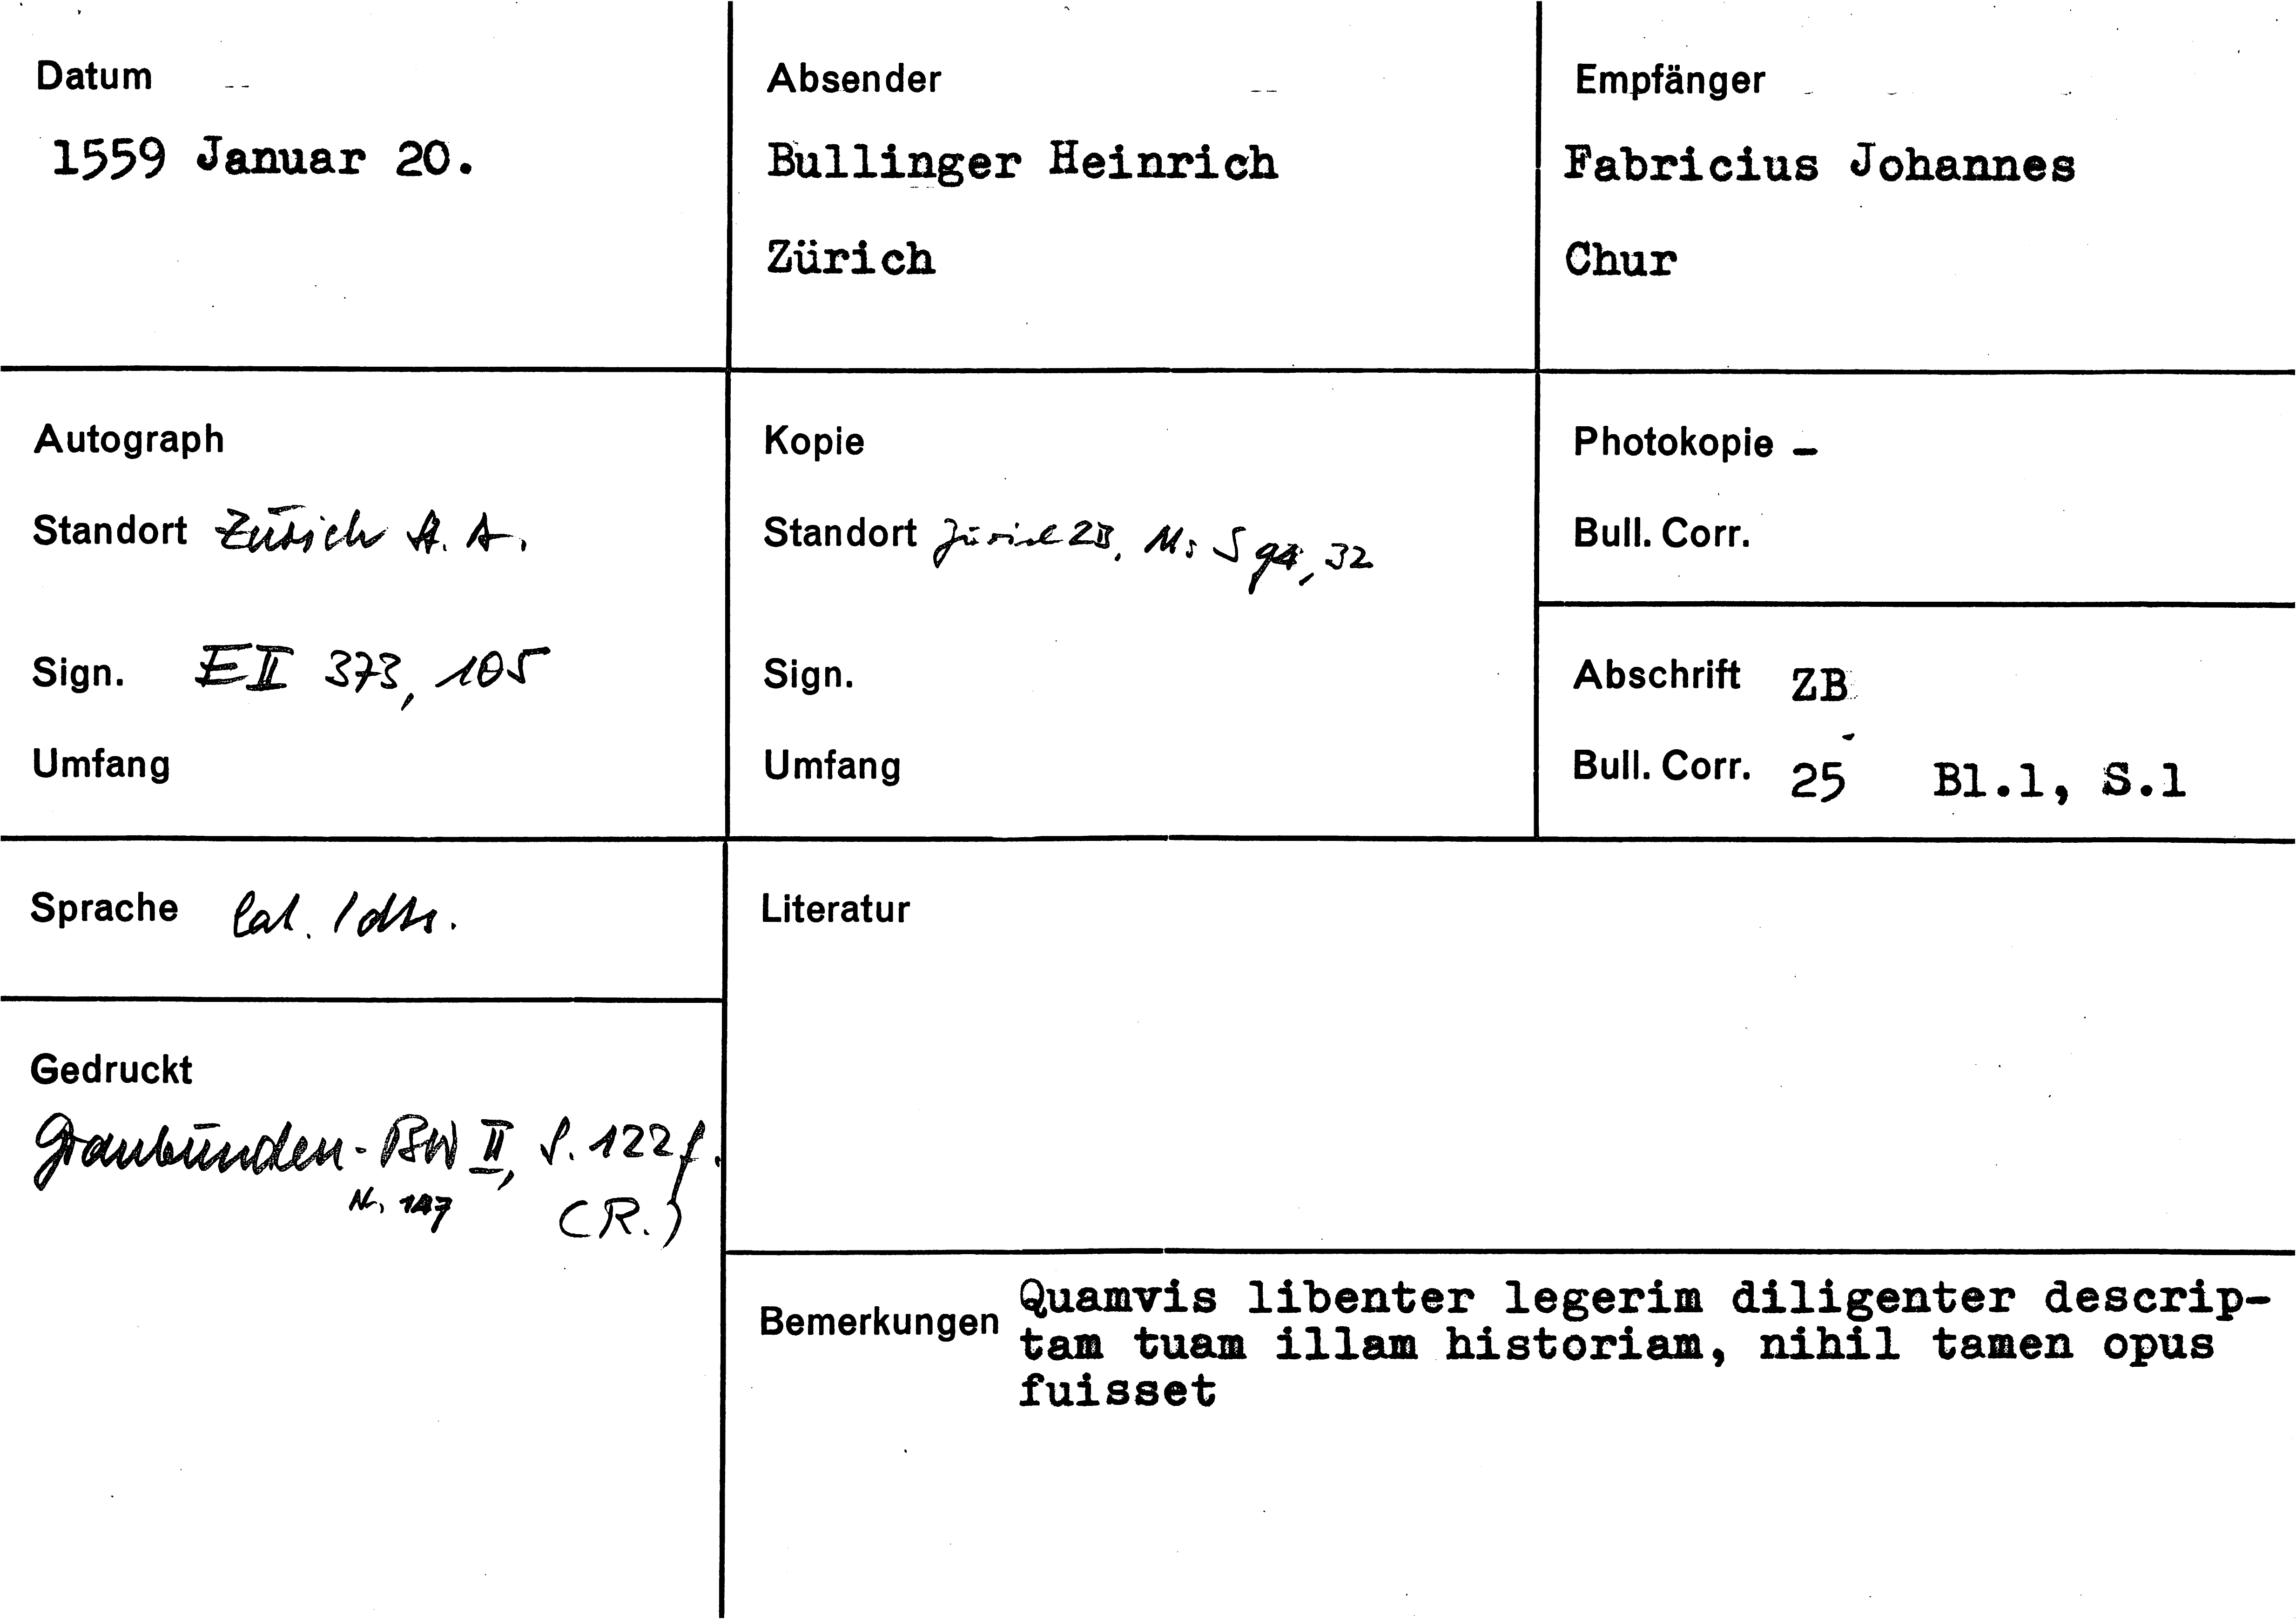 Datum
1559 Januar 20.
Absender
Bullinger Heinrich
Zürich
Empfänger
Fabricius Johannes
Chur
Autograph
Standort Zürich St. A.
Sign. E II 373, 105
Umfang
Kopie
Standort Zürich ZB, Ms S 94, 32
Sign.
Umfang
Photokopie -
Bull. Corr.
Abschrift ZB
Bull. Corr. 25 Bl.1, S.1
Sprache lat. / dts.
Gedruckt
Graubünden-BW II, S. 122 f.
Nr. 147 (R.)
Literatur
Bemerkungen Quamvis libenter legerim diligenter descrip-
tam tuam illam historiam, nihil tamen opus
fuisset